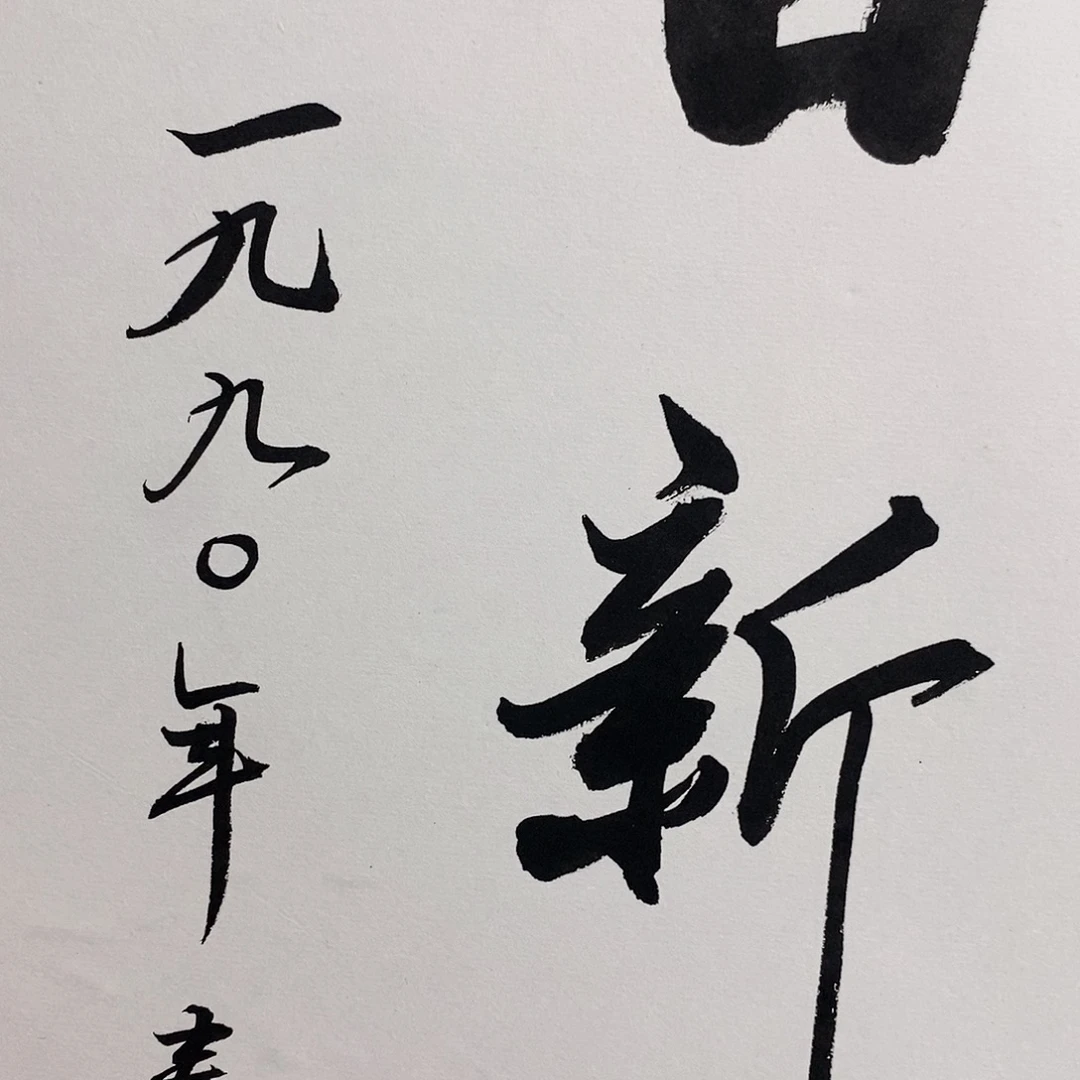 新
一九九〇年